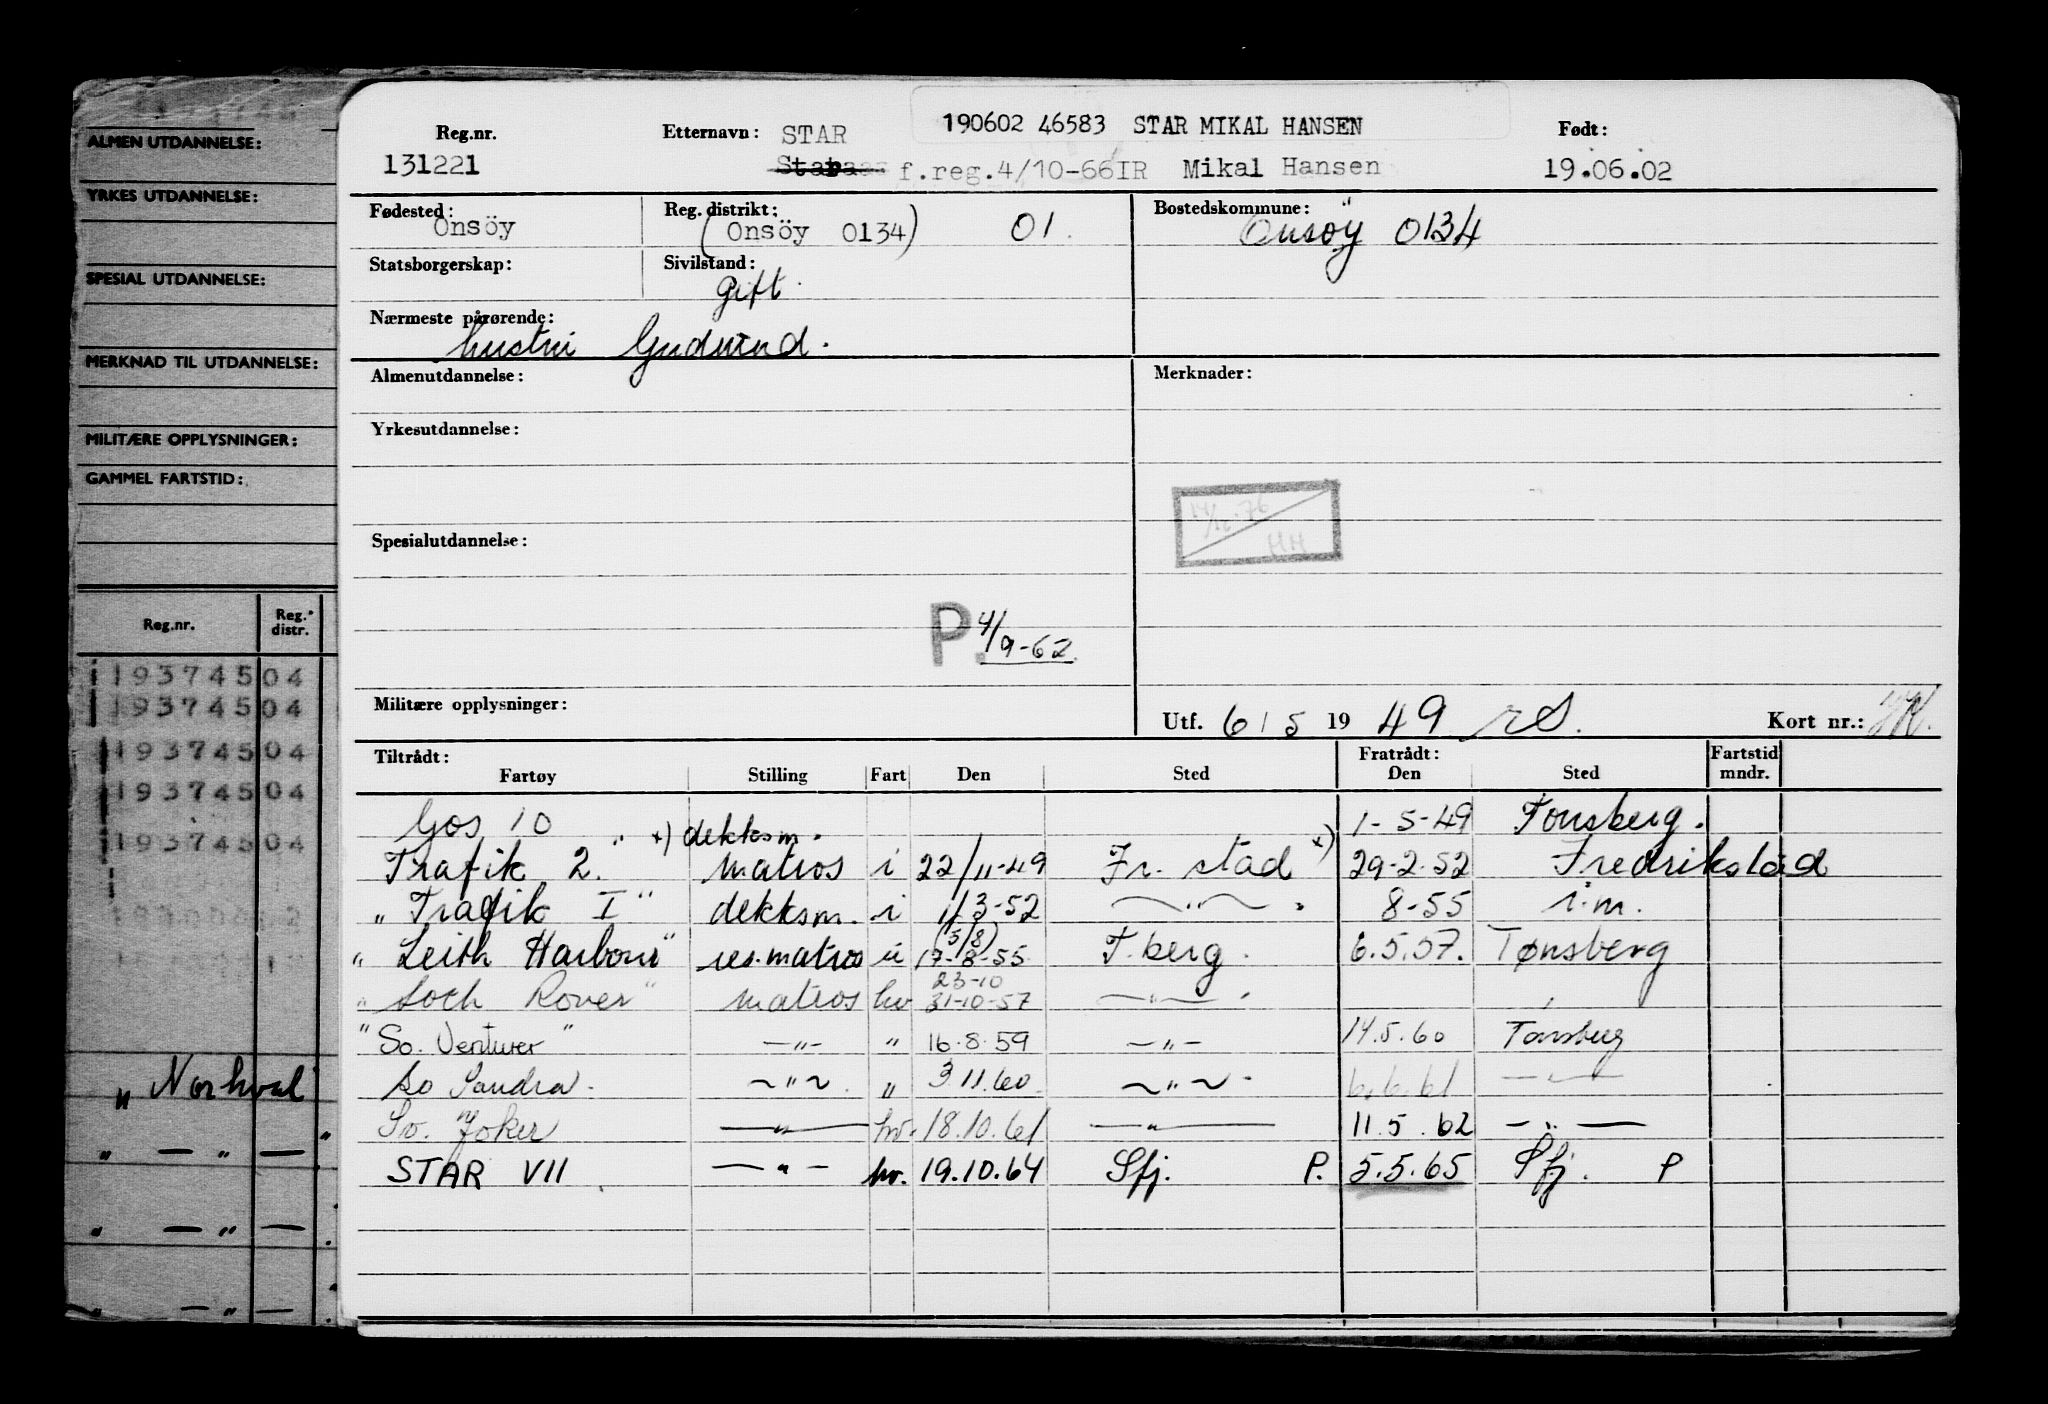 ALMEN UTDANNELSE:
YRKES UTDANNELSE:
SPESIAL UTDANNELSE:
MERKNAD TIL UTDANNELSE:
MILITÆRE OPPLYSNINGER:
GAMMEL FARTSTID:
Reg.nr. Reg. distr.
193745 04
193745 04
193745 04
193745 04
193745 04
„ Norhval"
„ — „ — „
„ — „ —
„ — „ —
190602 46583 STAR MIKAL HANSEN
Reg.nr. Etternavn: STAR Født:
131221 f.reg.4/10-66IR Mikal Hansen 19.06.02
Fødested: Onsöy Reg. distrikt: (Onsöy 0134) 01. Bostedskommune: Onsöy 0134
Statsborgerskap: Sivilstand: gift
Nærmeste pårørende: hustru Gudrund.
Almenutdannelse: Merknader:
Yrkesutdannelse:
14/12-76
HH
Spesialutdannelse:
P. 4/9-62.
Militære opplysninger: Utf. 6/5 1949 rS. Kort nr.:
Tiltrådt: Fratrådt: Fartstid
Fartøy Stilling Fart Den Sted Den Sted mndr.
Gos 10 1-5-49 Tønsberg.
x) dekksm.
Trafik 2." matros i 22/11-49 Fr. stad x) 29-2-52 Fredrikstad
„Trafik I" dekksm. i 1/3-52 — „ — 8-55 i.m.
(5/8)
„Leith Harbour" res.matros ü 17-8-55 T.berg. 6.5.57. Tønsberg
23-10
„Soth Rover" matros hv 31-10-57 — „ —
"So. Venturer" — „ — „ 16.8.59 — „ — 14.5.60 Tønsberg
So Sandra. — „ — „ 3.11.60. — „ — 6.6.61 — „ —
So. Joker — „ — hv. 18.10.61 — „ — 11.5.62 — „ —
STAR VII — „ — hv. 19.10.64 Sfj. P. 5.5.65 Sfj. P